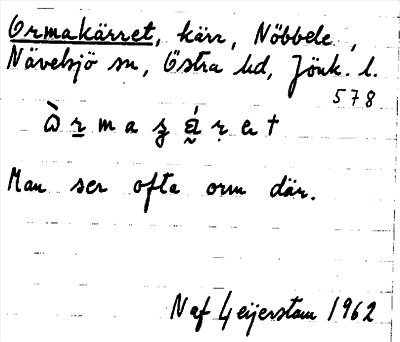 Ormakärret, kärr, Nöbbele,
Nävelsjö sn, Östra hd, Jönk. l.
578
Man ser ofta orm där.
Naf Geijerstam 1962